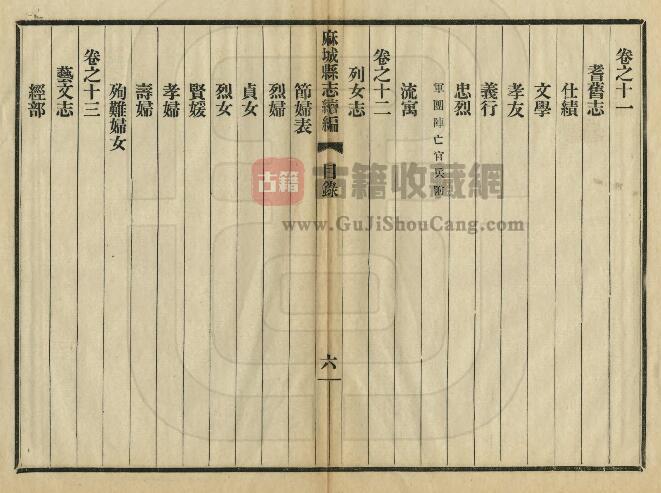 卷之十一
耆舊志
仕績
文學
孝友
義行
忠烈
軍團陣亡官兵附
流寓
卷之十二
列女志
麻城縣志續編
目錄
六
節婦表
烈婦
貞女
烈女
賢媛
孝婦
壽婦
殉難婦女
卷之十三
藝文志
經部
古籍
古籍收藏網
www.GuJiShouCang.com